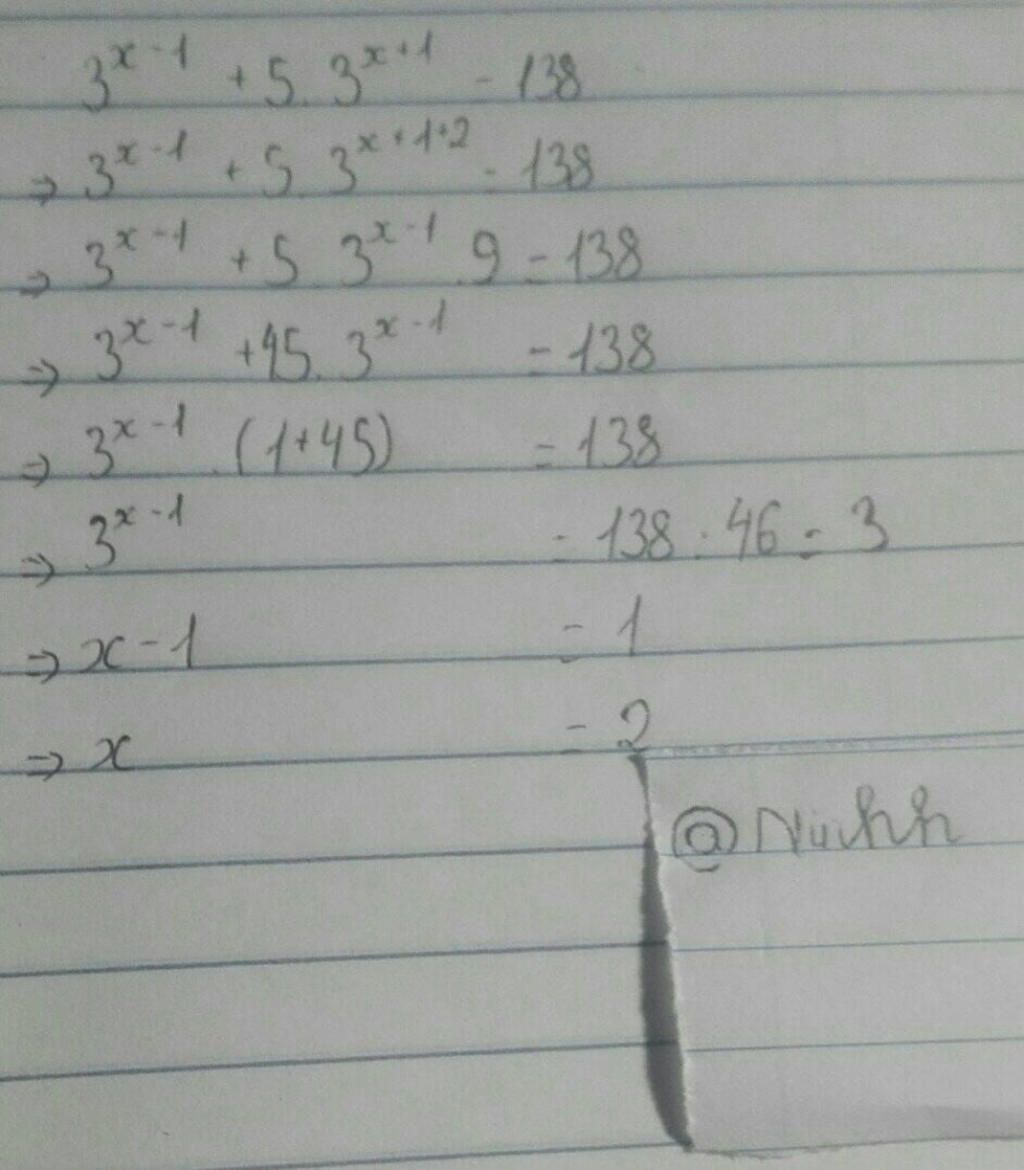 3^{x-1} + 5. 3^{x+1} = 138
⇒ 3^{x-1} + 5 3^{x+1+2} = 138
⇒ 3^{x-1} + 5 3^{x-1} 9 = 138
⇒ 3^{x-1} + 45. 3^{x-1} = 138
⇒ 3^{x-1} . (1+45) = 138
⇒ 3^{x-1} = 138 : 46 = 3
⇒ x-1 = 1
⇒ x = 2